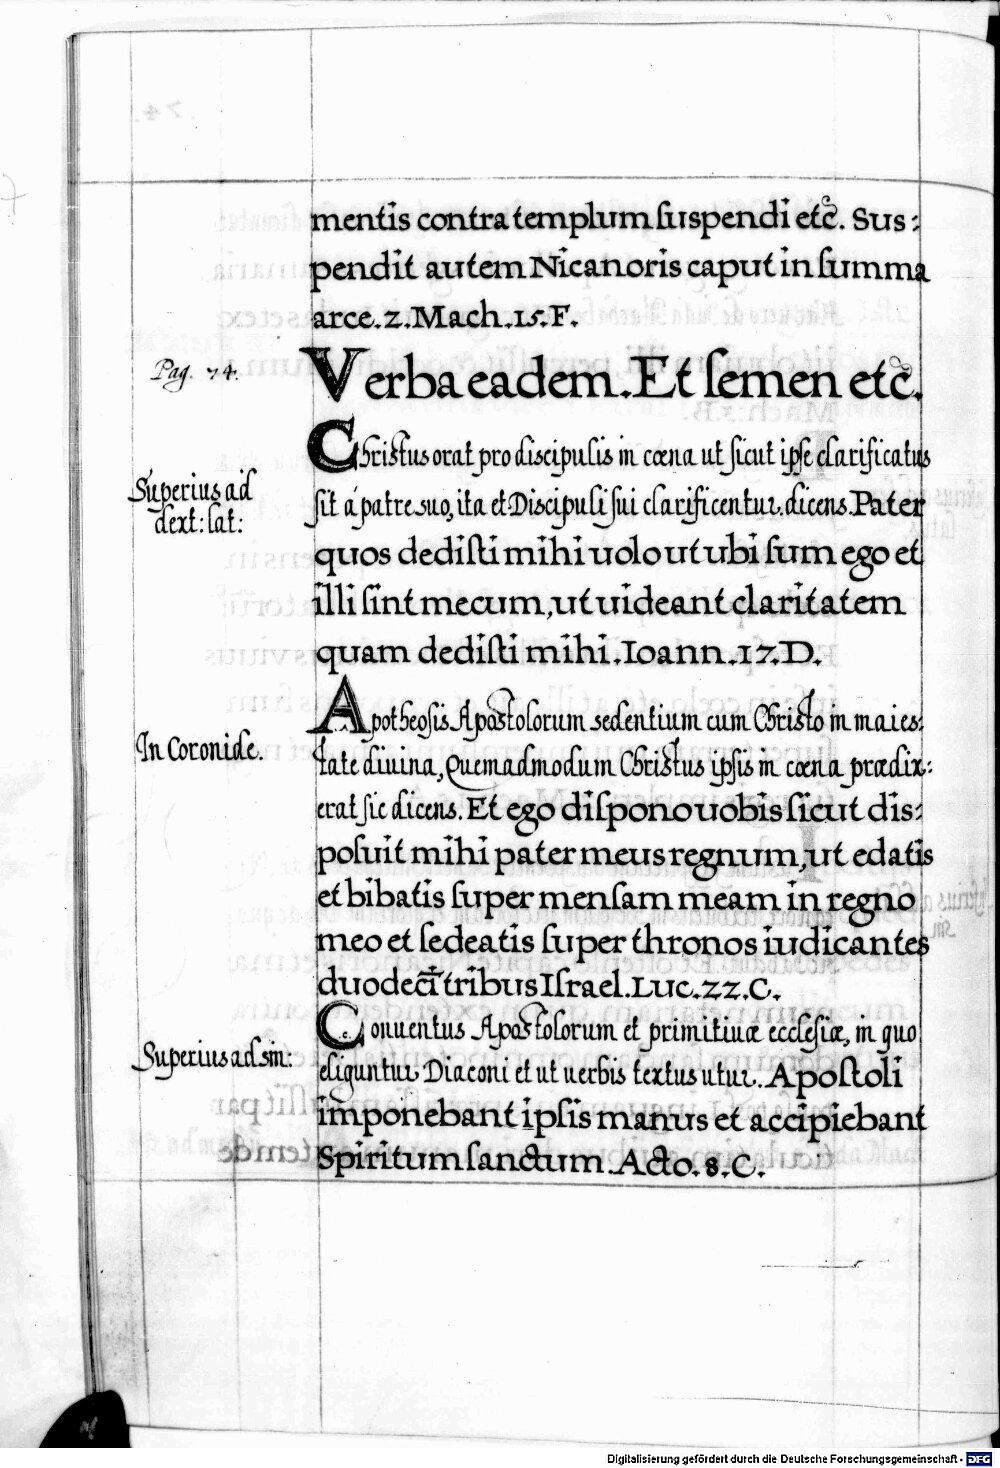 mentis contra templum suspendi etc̃. Sus:
pendit autem Nicanoris caput in summa
arce. 2. Mach. 15. F.
Pag. 74.
Verba eadem. Et semen etc̃.
Superius ad
dext: lat:
Christus orat pro discipulis in cœna ut sicut ipse clarificatus
sit á patre suo, ita et Discipuli sui clarificentur. dicens. Pater
quos dedisti mihi uolo ut ubi sum ego et
illi sint mecum, ut uideant claritatem
quam dedisti mihi. Ioann. 17. D.
In Coronide.
Apotheosis Apostolorum sedentium cum Christo in maies:
tate diuina, Quemadmodum Christus ipsis in cœna prædix:
erat sic dicens. Et ego dispono uobis sicut dis:
posuit mihi pater meus regnum, ut edatis
et bibatis super mensam meam in regno
meo et sedeatis super thronos iudicantes
duodecĩ tribus Israel. Luc. 22. C.
Superius ad sin:
Conuentus Apostolorum et primitiuæ ecclesiæ, in quo
eliguntur Diaconi et ut uerbis textus utur. Apostoli
imponebant ipsis manus et accipiebant
Spiritum sanctum. Acto. 8. C.
Digitalisierung gefördert durch die Deutsche Forschungsgemeinschaft - DFG